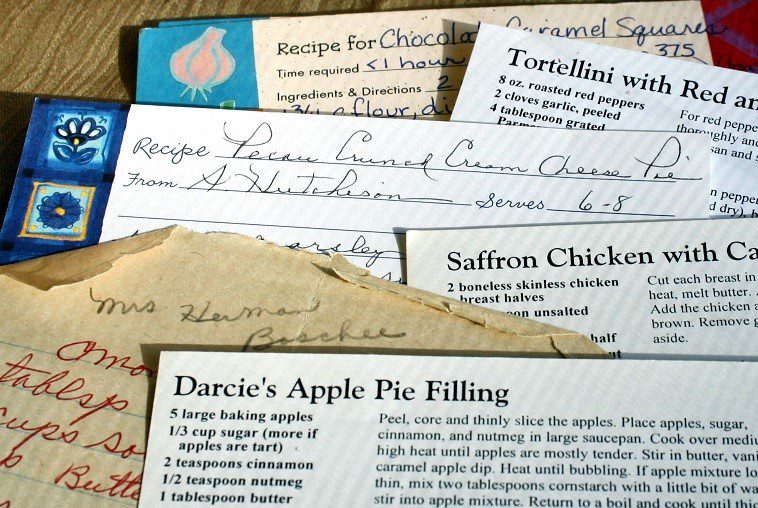 Recipe for Chocola Caramel Squares
Time required <1 hour 375
Ingredients & Directions 2
flour, di
Tortellini with Red an
8 oz. roasted red peppers
2 cloves garlic, peeled
4 tablespoon grated
Parme
For red peppe
thoroughly and
san and s
n pepper
d dry), b
Recipe Pecan Cruned Cream Cheese Pie
From S Hutchison Serves 6-8
Saffron Chicken with Ca
2 boneless skinless chicken
breast halves
on unsalted
half
ut
Cut each breast in
heat, melt butter.
Add the chicken a
brown. Remove
aside.
Mrs Herman
Boschee
tablsp
cups so
Butte
Darcie's Apple Pie Filling
5 large baking apples
1/3 cup sugar (more if
apples are tart)
2 teaspoons cinnamon
1/2 teaspoon nutmeg
1 tablespoon butter
Peel, core and thinly slice the apples. Place apples, sugar,
cinnamon, and nutmeg in large saucepan. Cook over mediu
high heat until apples are mostly tender. Stir in butter, vani
caramel apple dip. Heat until bubbling. If apple mixture lo
thin, mix two tablespoons cornstarch with a little bit of wa
stir into apple mixture. Return to a boil and cook until thic